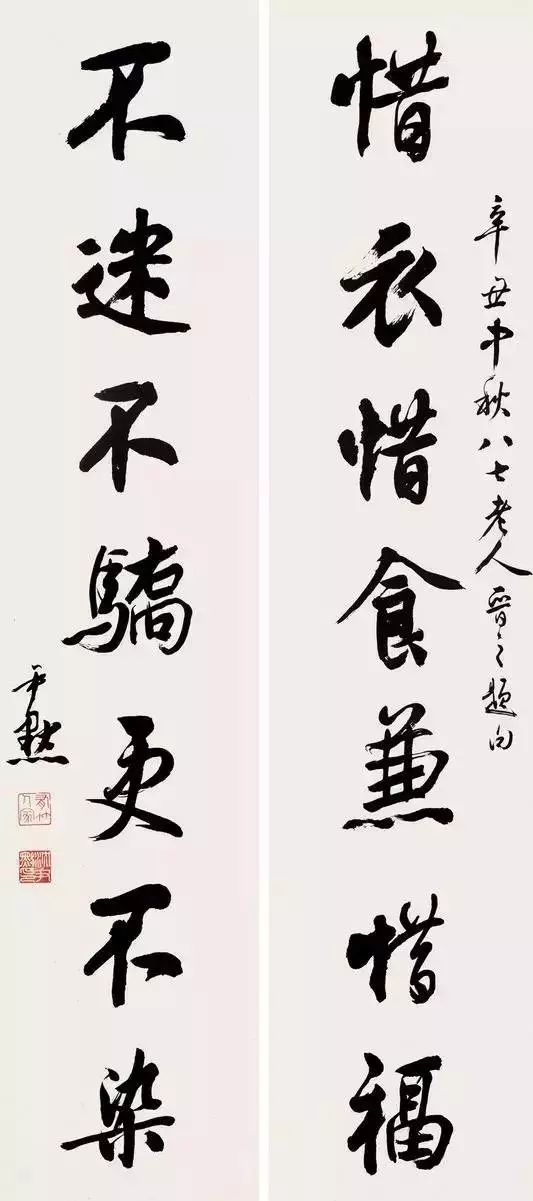 辛丑中秋八七老人晋之题句
惜衣惜食兼惜福
不迷不驕更不染
尹默